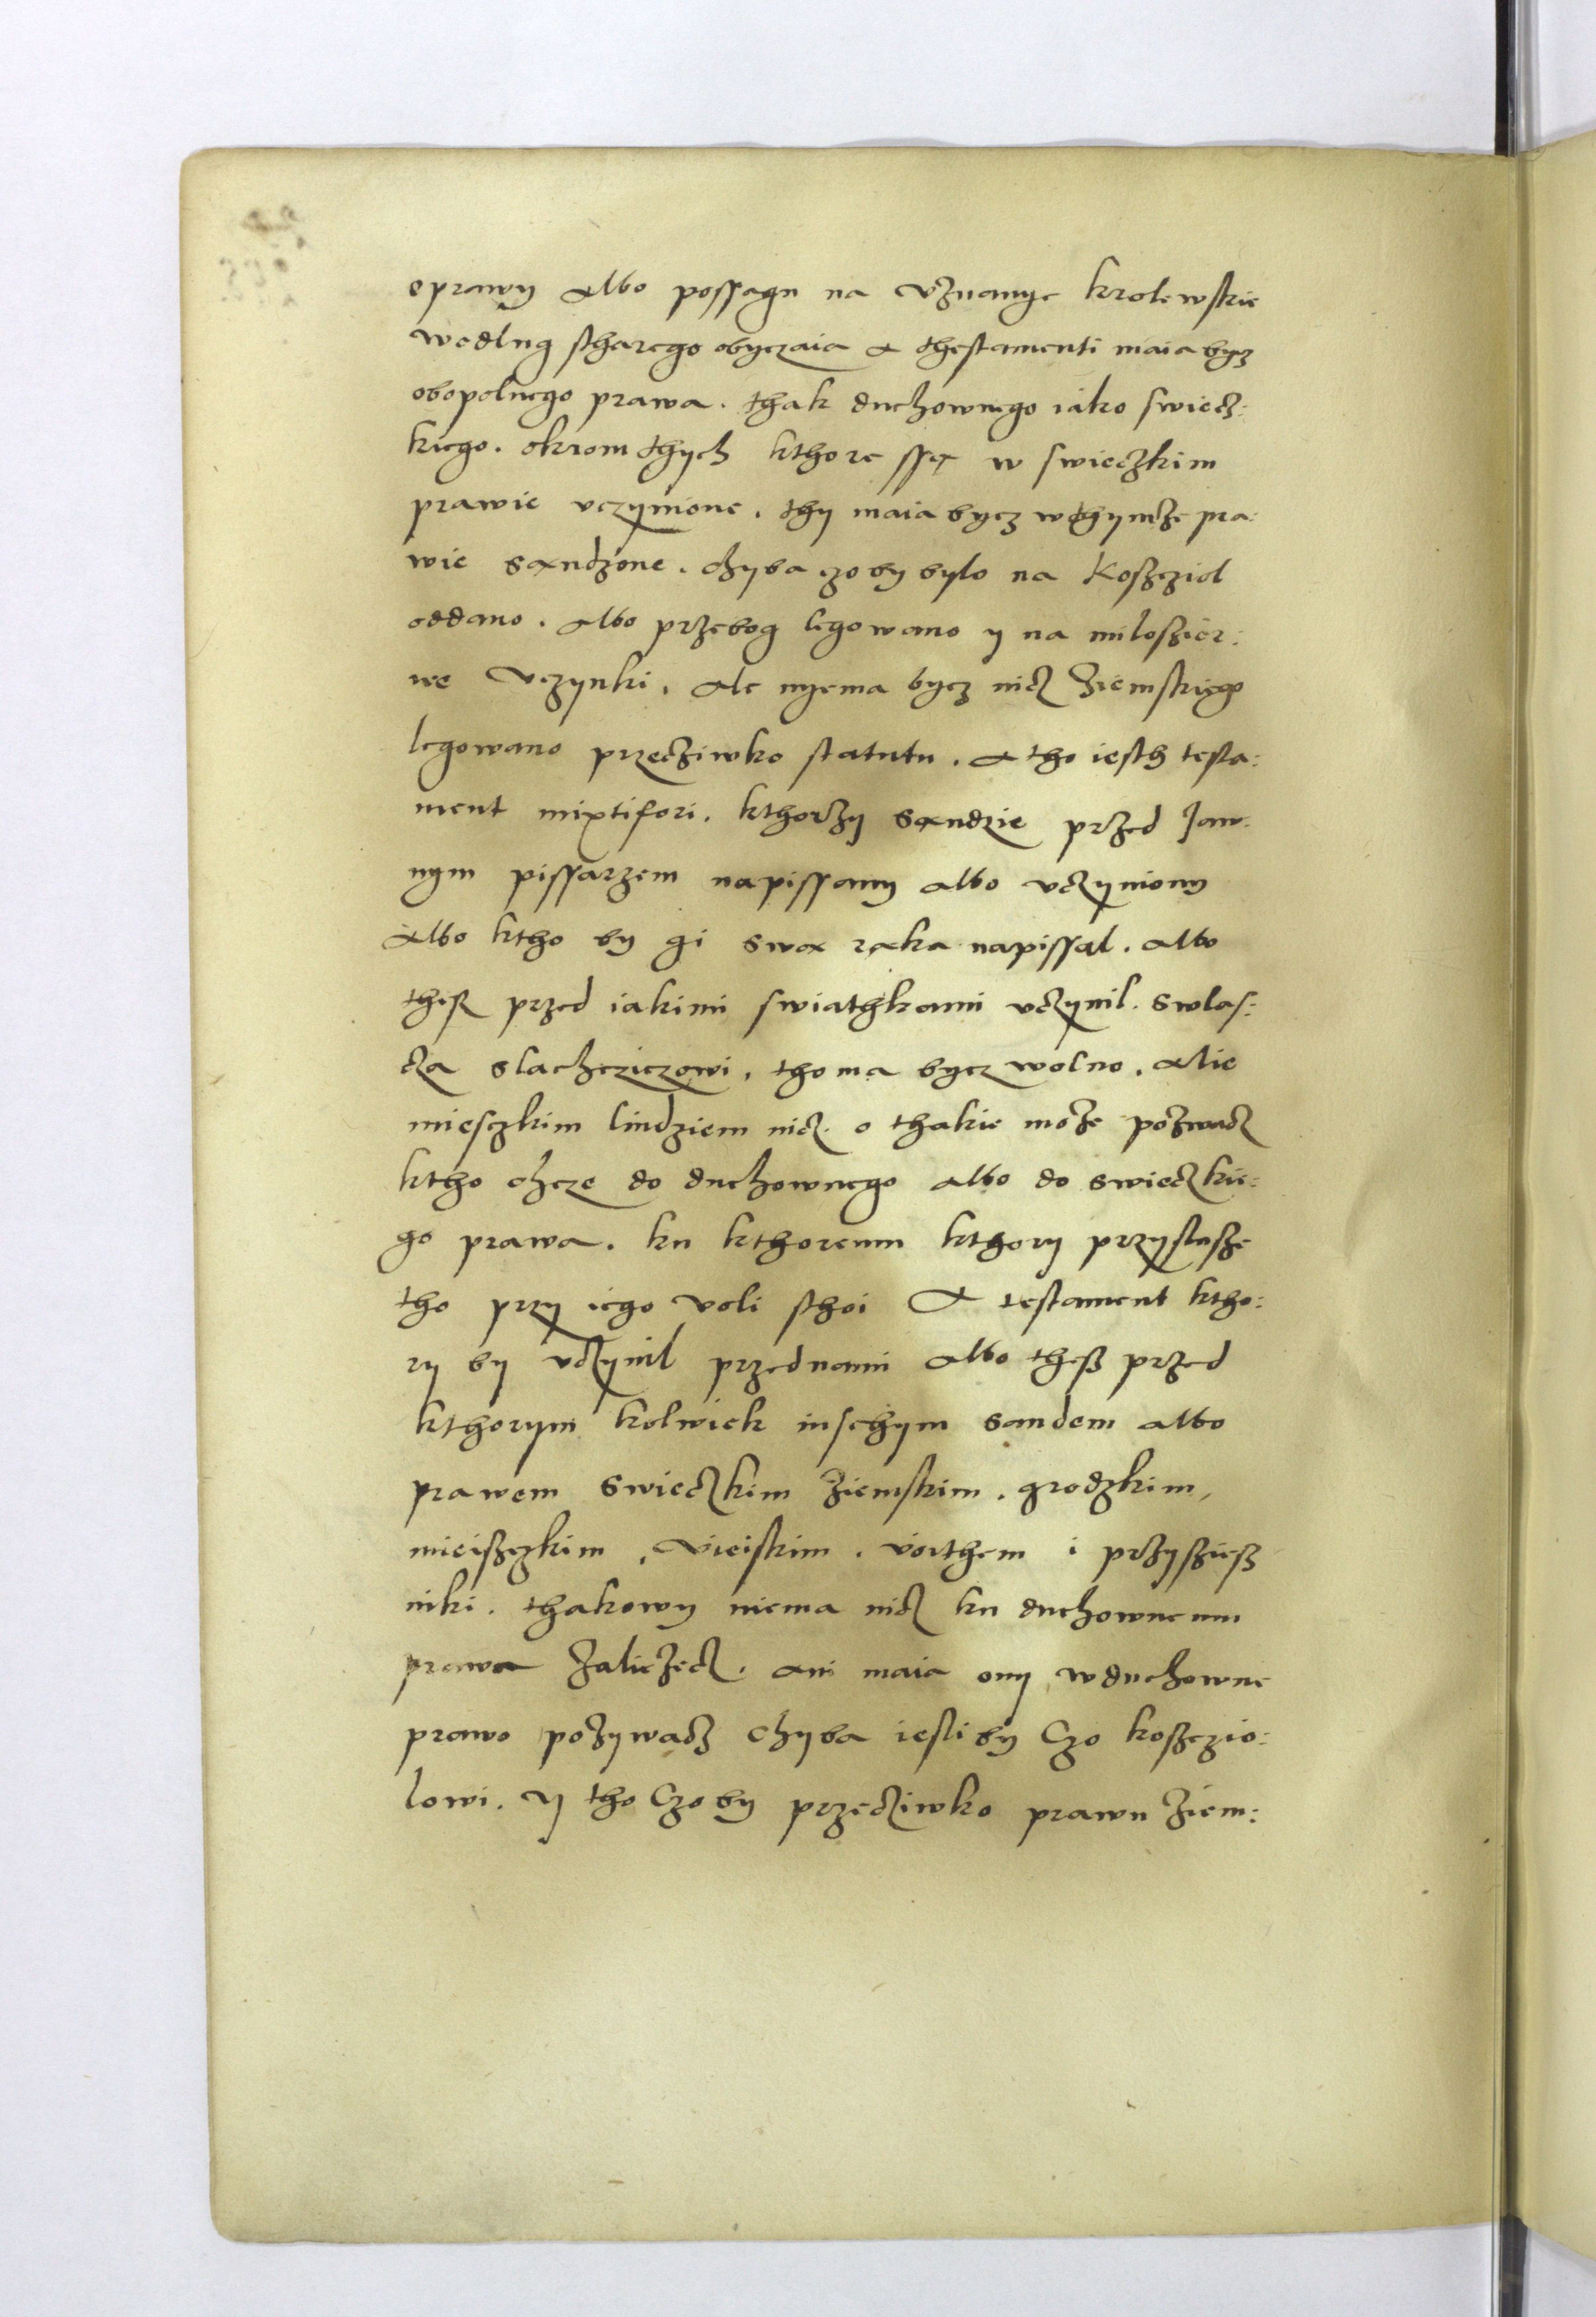 oprawy albo possagu na vznanye krolewskie
wedlug stharego obyczaia a thestamenti maia bycz
obopolnego prawa. thak duchownego iako swiecz:
kiego. okrom thych kthore ssą w swieczkim
prawie vczynione. thy maia bycz wthymże pra:
wie sąndzone. chyba czo by bylo na Koszcziol
oddano. albo przebog legowano y na miloszier:
ne Vczynki. ale nyema bycz nicz Ziemskiego
legowano przecziwko statutu. a tho iesth testa:
ment mixtifori. kthorzy sąndzie przed Jaw:
nym pissarzem napissany albo vczyniony
albo ktho by gi swą rąka napissal. albo
thesz przed iakimi swiathkami vczynil. swlas:
cza slachcziczowi. tho ma bycz wolno. alie
miesczkim liudziem nicz. o thakie może pożwacz
ktho chcze do duchownego albo do swieczkie:
go prawa. ku kthoremu kthory przyslusze
tho przy iego voli sthoi A testament ktho:
ry by vczynil przednami albo thesz przed
kthorym kolwiek inschym sandem albo
prawem swieczkim ziemskim. grodzkim,
mieiszczkim, Vieiskim. voithem i przyszięsz
niki. thakowy niema nicz ku duchownemu
prawu Zaliezecz. ani maia ony wduchowne
prawo pożywacz chyba iesli by Czo koszczio:
lowi. Y tho Czo by przecziwko prawu Ziem: